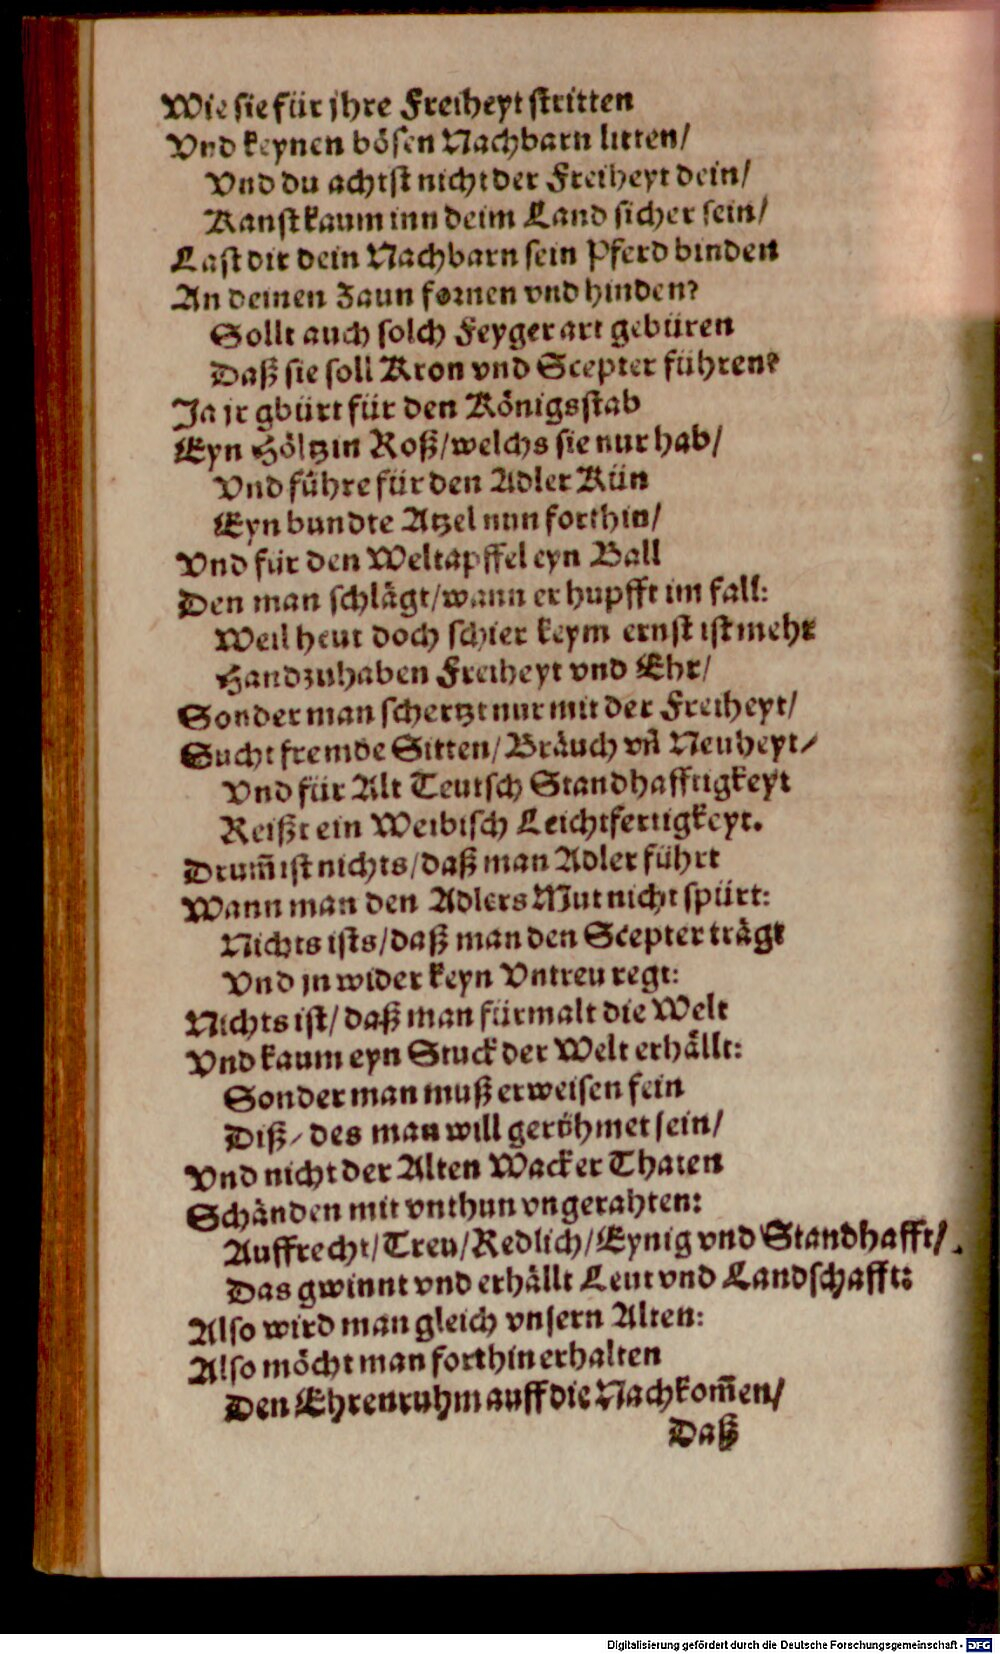 Wie sie für jhre Freiheyt stritten
Vnd keynen bösen Nachbarn litten/
Vnd du achtst nicht der Freiheyt dein/
Kanst kaum inn deim Land sicher sein/
Last dir dein Nachbarn sein Pferd binden
An deinen Zaun fornen vnd hinden?
Sollt auch solch Feyger art gebüren
Daß sie soll Kron vnd Scepter führen?
Ja jr gbürt für den Königsstab
Eyn Höltzin Roß/welchs sie nur hab/
Vnd führe für den Adler Kün
Eyn bundte Atzel nun forthin/
Vnd für den Weltapffel eyn Ball
Den man schlägt/wann er hupfft im fall:
Weil heut doch schier keym ernst ist mehr
Handzuhaben Freiheyt vnd Ehr/
Sonder man schertzt nur mit der Freiheyt/
Sucht fremde Sitten/Bräuch vñ Neuheyt/
Vnd für Alt Teutsch Standhafftigkeyt
Reißt ein Weibisch Leichtfertigkeyt.
Drum̃ ist nichts/daß man Adler führt
Wann man den Adlers Mut nicht spürt:
Nichts ists/daß man den Scepter trägt
Vnd jn wider keyn Vntreu regt:
Nichts ist/daß man fürmalt die Welt
Vnd kaum eyn Stuck der Welt erhällt:
Sonder man muß erweisen fein
Diß/des man will geröhmet sein/
Vnd nicht der Alten Wacker Thaten
Schänden mit vnthun vngerahten:
Auffrecht/Treu/Redlich/Eynig vnd Standhafft/
Das gwinnt vnd erhällt Leut vnd Landschafft:
Also wird man gleich vnsern Alten:
Also möcht man forthin erhalten
Den Ehrenruhm auff die Nachkom̃en/
Daß
Digitalisierung gefördert durch die Deutsche Forschungsgemeinschaft - DFG